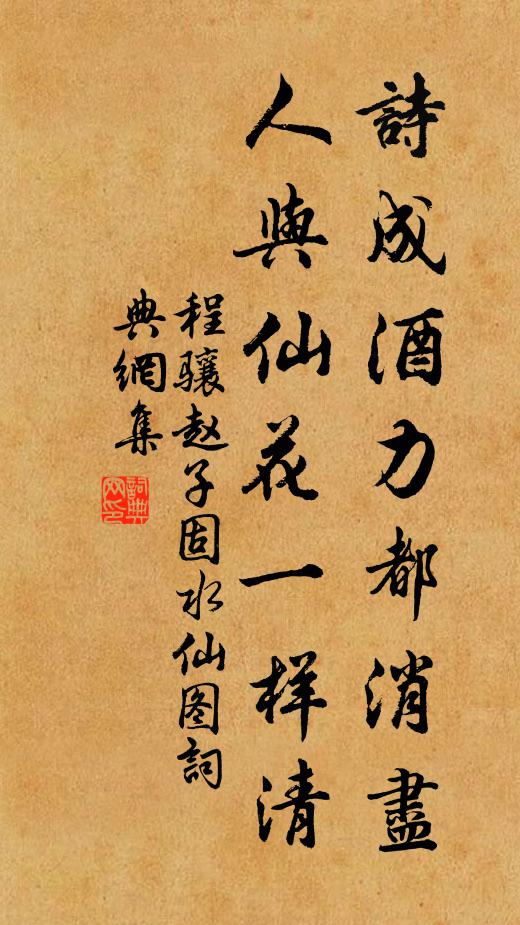 詩成酒力都消盡
人與仙花一样清
程骧赵子固水仙图詞
典網集
詞典网印